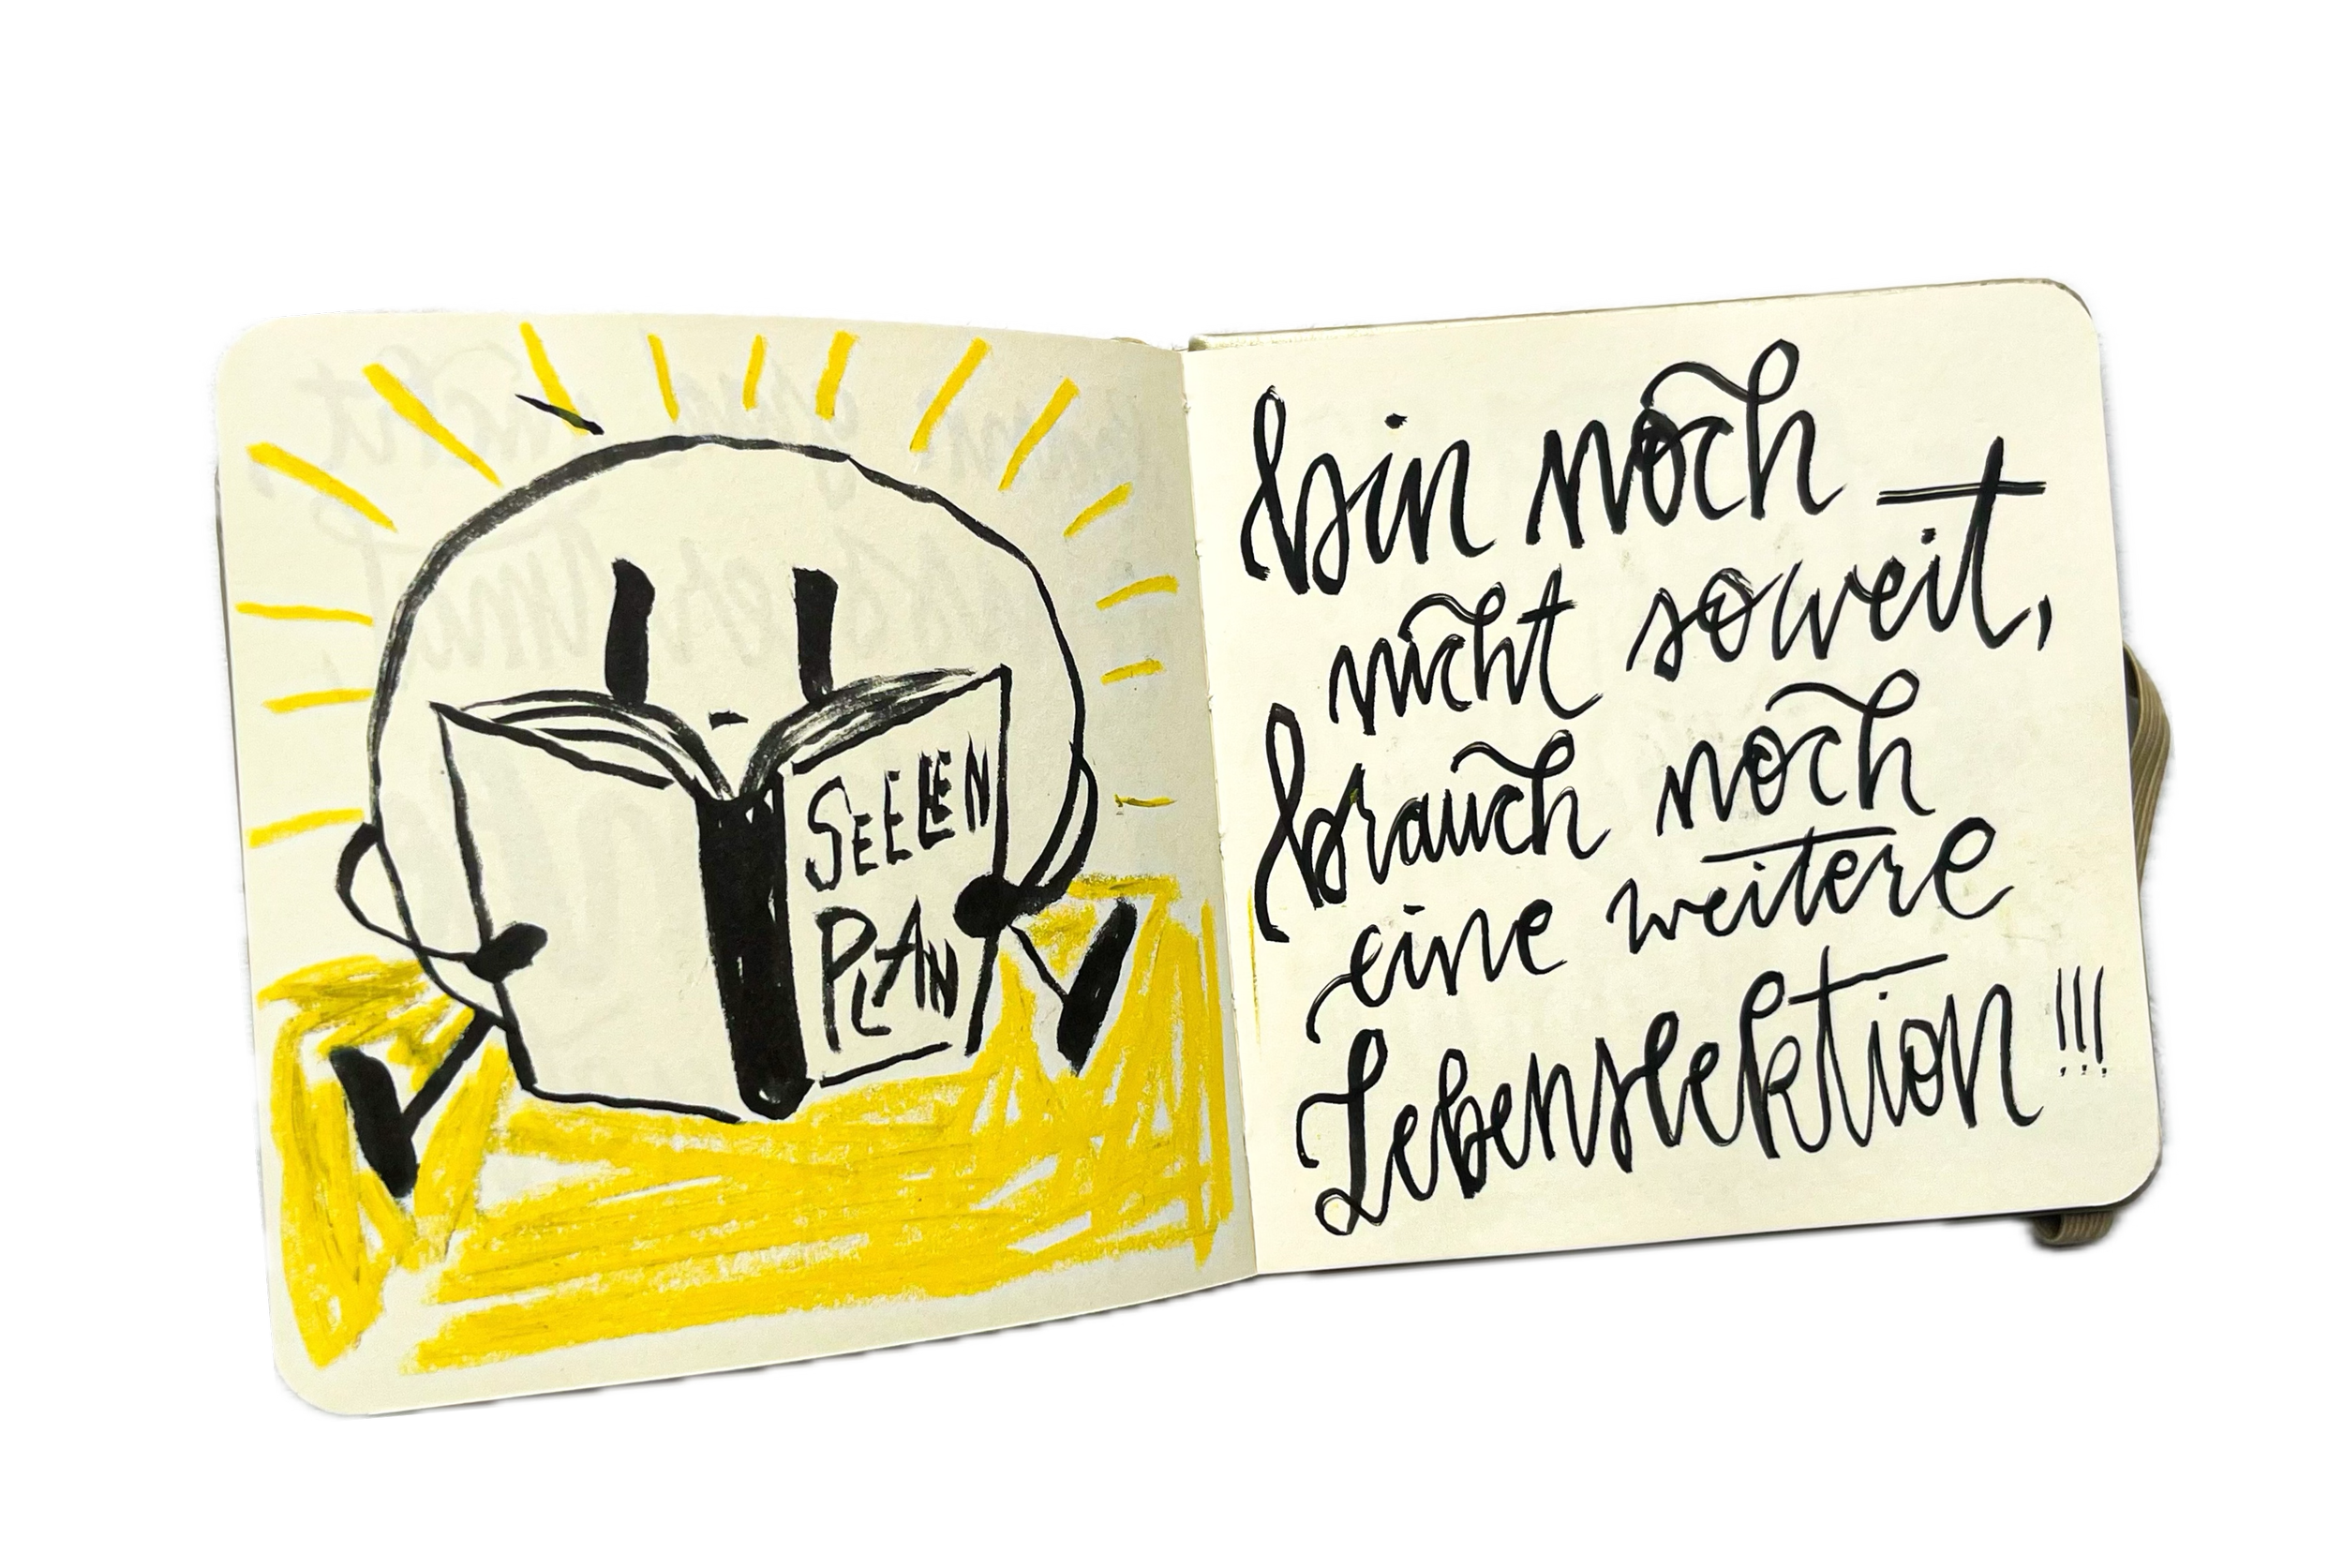 SEELEN
PLAN
bin noch
nicht soweit,
brauch noch
eine weitere
Lebenslektion!!!